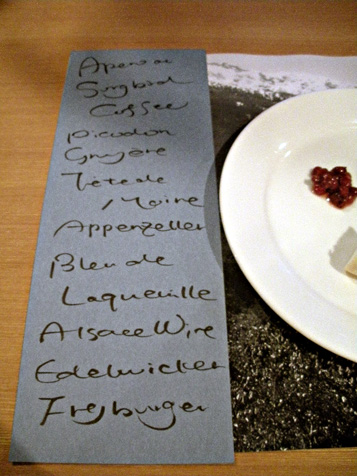 Coffee
Picodon
Gruyère
Tête de
Moine
Appenzeller
Bleu de
Laqueuille
Alsace Wine
Edelwicker
Freyburger